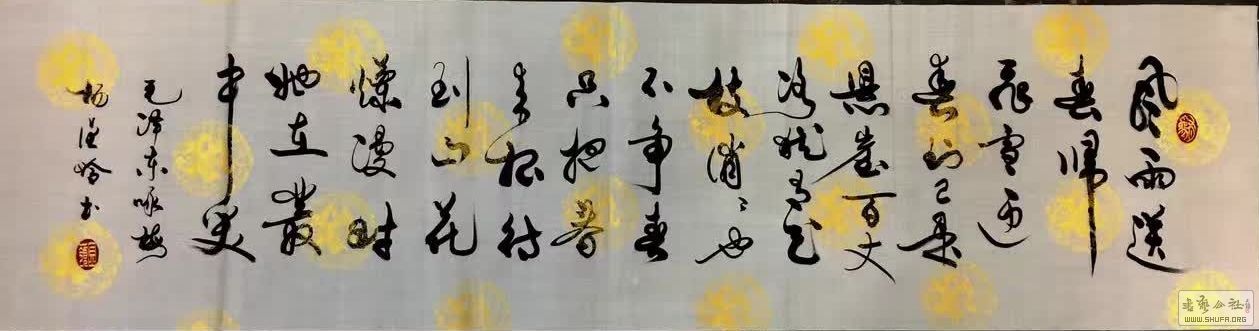 風雨送
春歸
飛雪迎
春到已是
懸崖百丈
冰犹有花
枝俏〻也
不争春
只把春
来报待
到山花
爛漫时
她在叢
中笑
毛泽东咏梅
杨书
书艺公社
WWW.SHUFA.ORG